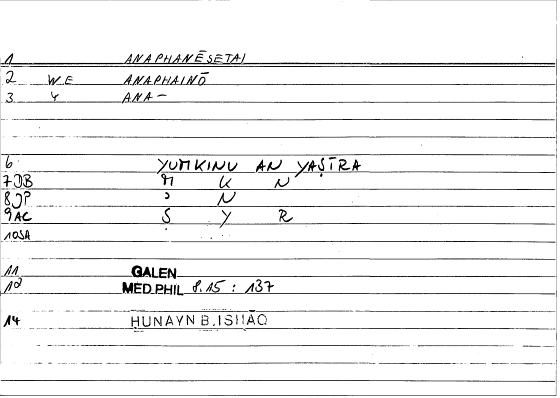 1 ANAPHANĒSETAI
2 WE ANAPHAINŌ
3 4 ANA-
6 YUMKINU AN YAṢĪRA
7 DB M K N
8 JP ʾ N
9 AC Ṣ Y R
10 SA
11 GALEN
12 MED.PHIL 8.15 : 137
14 HUNAYN B. ISHĀQ